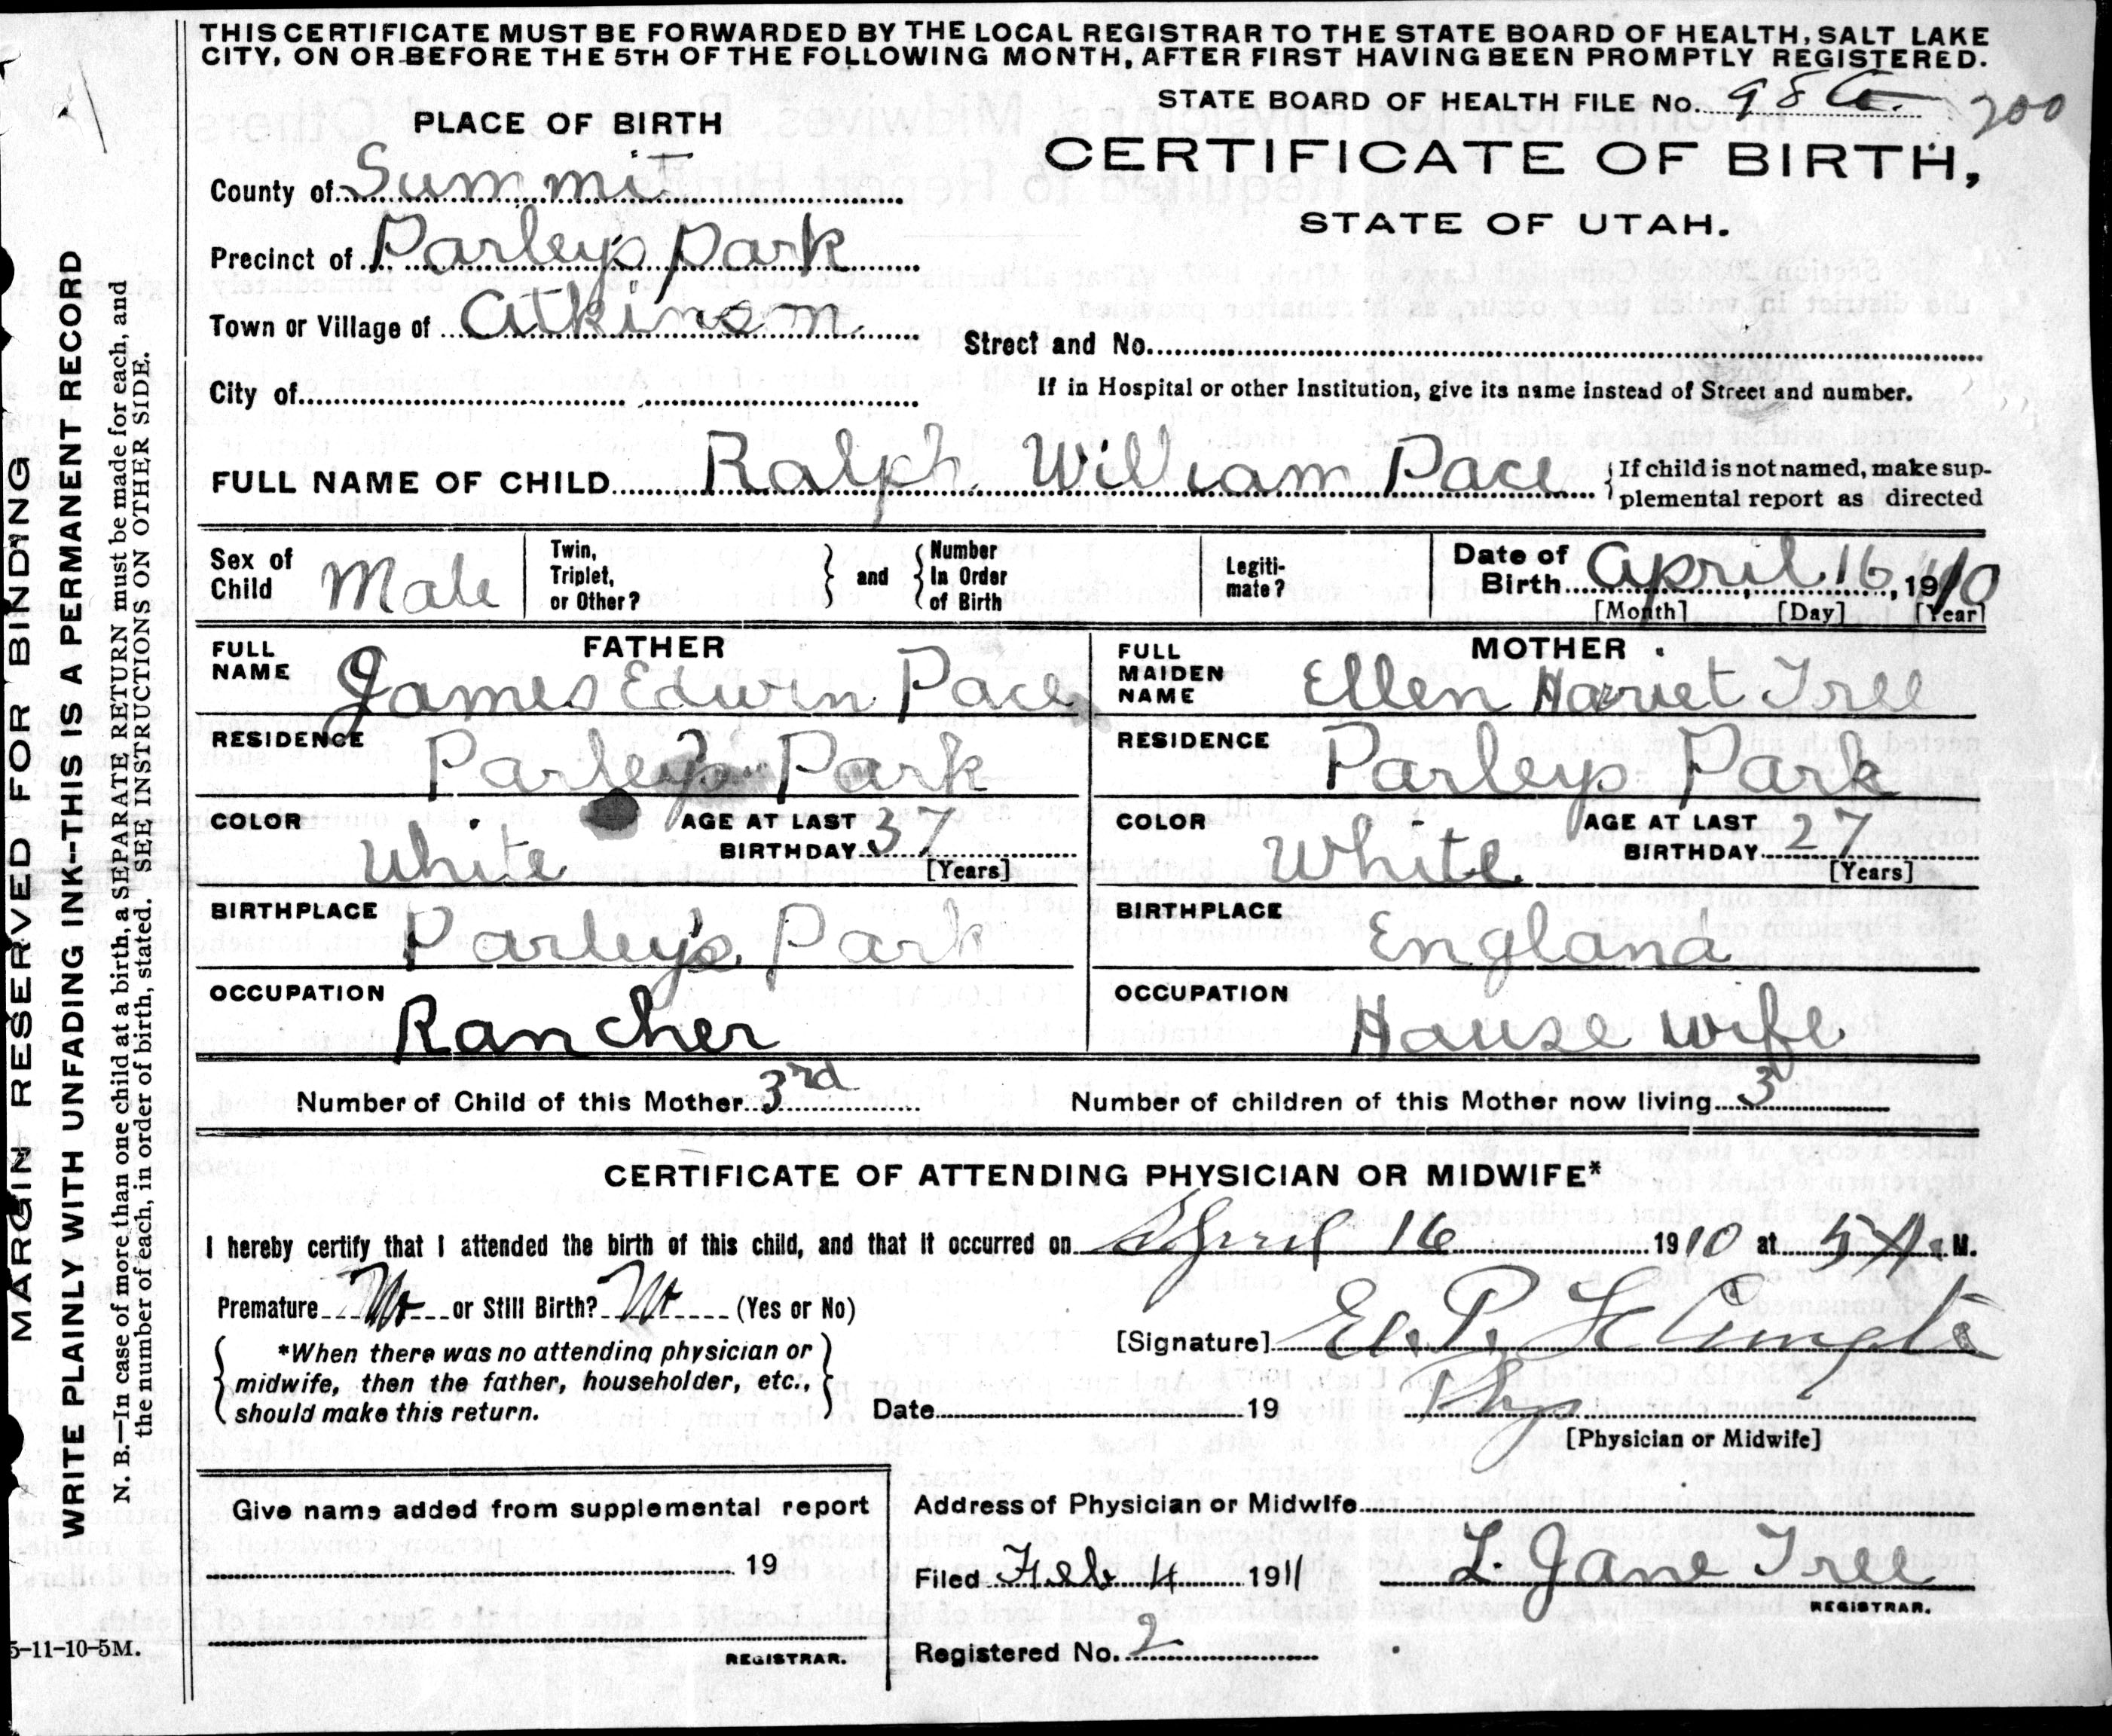 THIS CERTIFICATE MUST BE FORWARDED BY THE LOCAL REGISTRAR TO THE STATE BOARD OF HEALTH, SALT LAKE
CITY, ON OR BEFORE THE 5TH OF THE FOLLOWING MONTH, AFTER FIRST HAVING BEEN PROMPTLY REGISTERED.
STATE BOARD OF HEALTH FILE No. 98 200
CERTIFICATE OF BIRTH,
STATE OF UTAH.
PLACE OF BIRTH
County of Summit
Precinct of Parleys Park
Town or Village of Atkinson
Street and No.
City of
If in Hospital or other Institution, give its name instead of Street and number.
FULL NAME OF CHILD Ralph William Pace
{If child is not named, make sup-
plemental report as directed
Sex of Child Male
Twin, Triplet, or Other? } and { Number In Order of Birth
Legiti-mate?
Date of Birth April 16, 1910
[Month] [Day] [Year]
FATHER
FULL NAME James Edwin Pace
RESIDENCE Parleys Park
COLOR White AGE AT LAST BIRTHDAY 37 [Years]
BIRTHPLACE Parley's Park
OCCUPATION Rancher
MOTHER
FULL MAIDEN NAME Ellen Harriet Tree
RESIDENCE Parleys Park
COLOR White AGE AT LAST BIRTHDAY 27 [Years]
BIRTHPLACE England
OCCUPATION House wife
Number of Child of this Mother 3rd Number of children of this Mother now living 3
CERTIFICATE OF ATTENDING PHYSICIAN OR MIDWIFE*
I hereby certify that I attended the birth of this child, and that it occurred on April 16 1910 at 5 A. M.
Premature No or Still Birth? No (Yes or No)
*When there was no attending physician or
midwife, then the father, householder, etc.,
should make this return.
[Signature] E. P.
Date 19 Phys
[Physician or Midwife]
Give name added from supplemental report
19
REGISTRAR.
Address of Physician or Midwife
Filed Feb 4 1911 L. Jane Tree
REGISTRAR.
Registered No. 2
MARGIN RESERVED FOR BINDING
WRITE PLAINLY WITH UNFADING INK--THIS IS A PERMANENT RECORD
N. B.—In case of more than one child at a birth, a SEPARATE RETURN must be made for each, and
the number of each, in order of birth, stated. SEE INSTRUCTIONS ON OTHER SIDE.
5-11-10-5M.